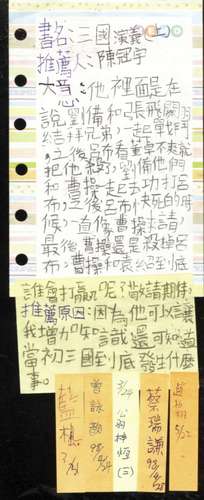 書名:三國演義(上)
推薦人:陳冠宇
大意:他裡面是在
說劉備和張飛關羽
結拜兄弟,一起戰鬥,
之後呂布看董卓不爽就
把他殺了,劉備他們
和曹操一起去攻打呂
布,呂布快死的時
候,一直像曹操求請,
最後曹操還是殺掉呂
布,曹操和袁紹到底
誰會打贏呢?敬請期待。
推薦原因:因為他可以讓
我增加知識還可知道
當初三國到底發生什麼
事。
曾詠韵
98.4/24
3/24
公的神恆(三)
蔡瑞謙
98.5/25
5/22.